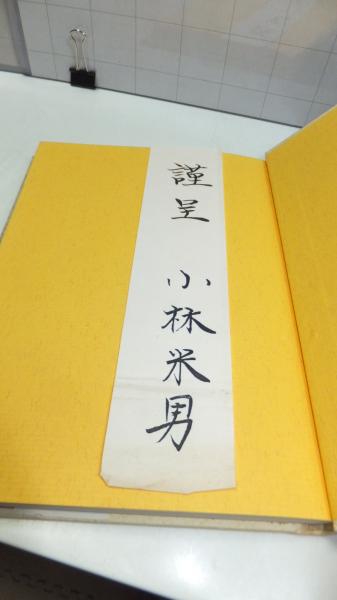 謹呈 小林米男